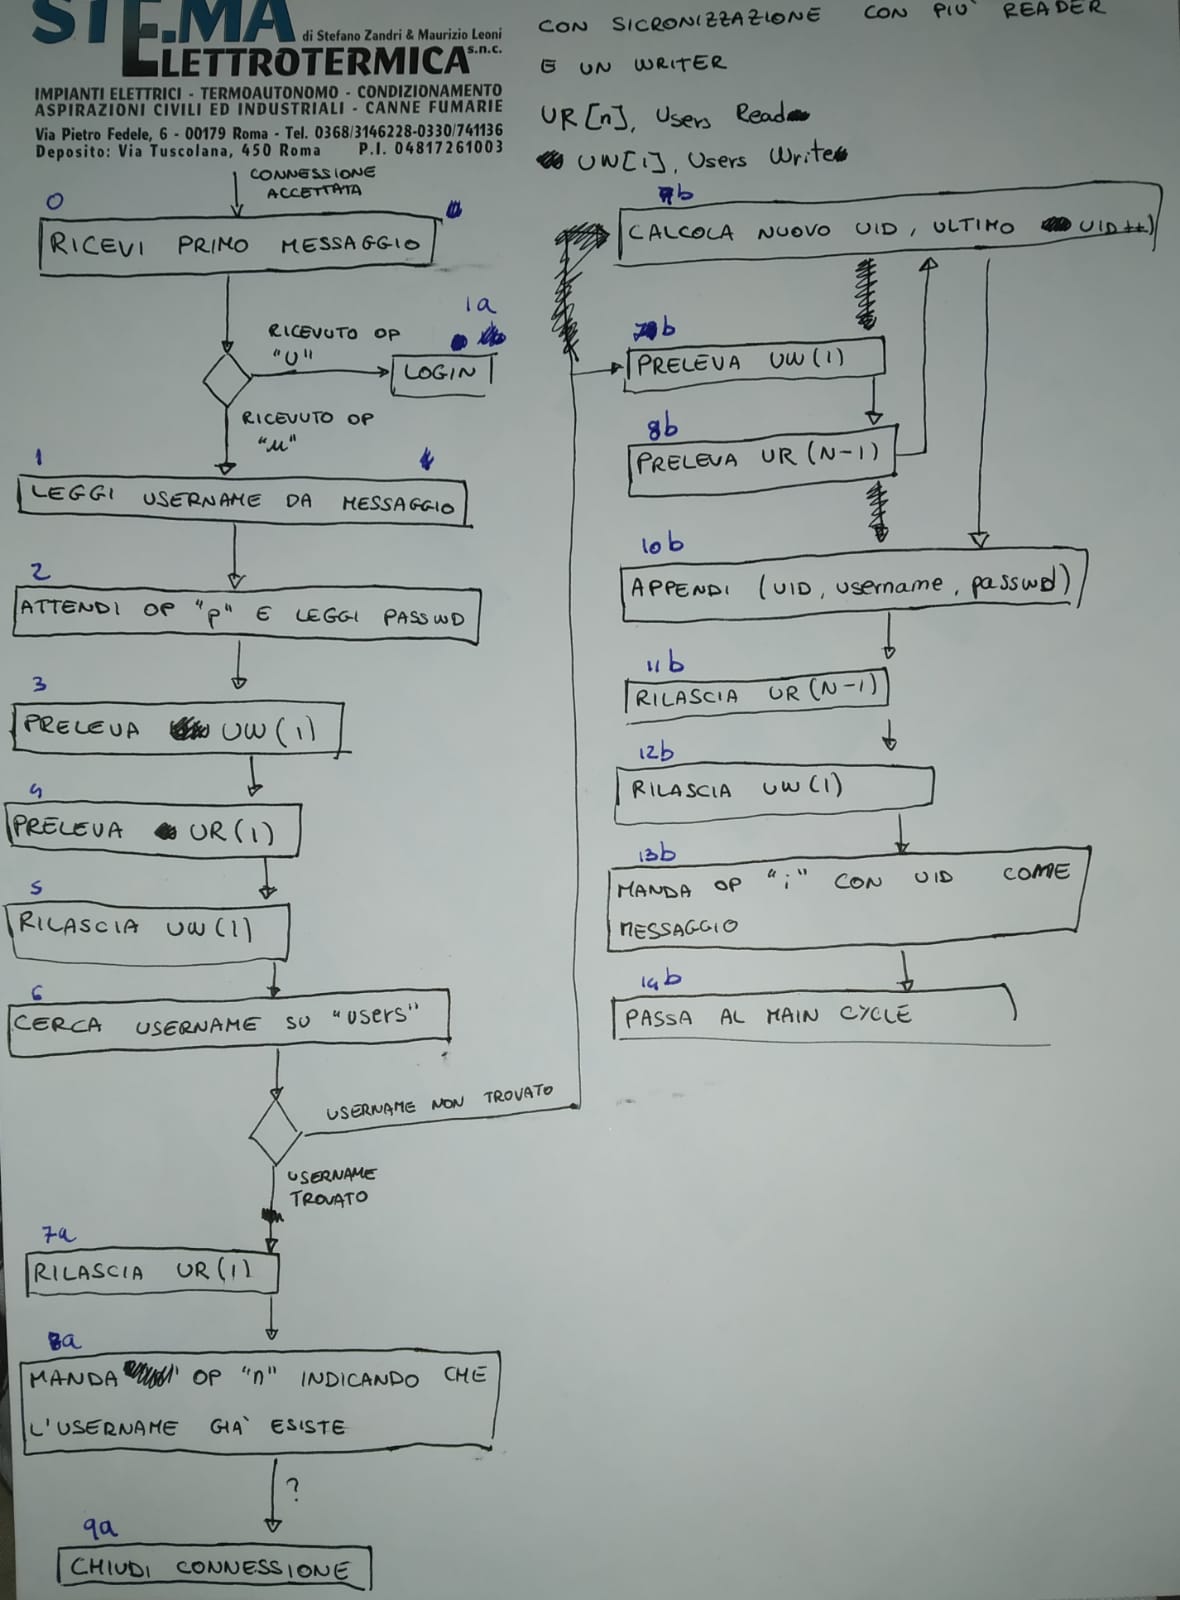 STE.MA
di Stefano Zandri & Maurizio Leoni
ELETTROTERMICA s.n.c.
IMPIANTI ELETTRICI - TERMOAUTONOMO - CONDIZIONAMENTO
ASPIRAZIONI CIVILI ED INDUSTRIALI - CANNE FUMARIE
Via Pietro Fedele, 6 - 00179 Roma - Tel. 0368/3146228-0330/741136
Deposito: Via Tuscolana, 450 Roma P.I. 04817261003
CON SICRONIZZAZIONE CON PIU' READER
E UN WRITER
UR[n], Users Read
UW[1], Users Write
CONNESSIONE
ACCETTATA
0
RICEVI PRIMO MESSAGGIO
RICEVUTO OP
"U"
1a
LOGIN
RICEVUTO OP
"u"
1
LEGGI USERNAME DA MESSAGGIO
2
ATTENDI OP "p" E LEGGI PASSWD
3
PRELEVA UW(1)
4
PRELEVA UR(1)
5
RILASCIA UW(1)
6
CERCA USERNAME SU "users"
USERNAME NON TROVATO
USERNAME
TROVATO
7a
RILASCIA UR(1)
8a
MANDA OP "n" INDICANDO CHE
L'USERNAME GIA' ESISTE
?
9a
CHIUDI CONNESSIONE
9b
CALCOLA NUOVO UID, ULTIMO UID++)
7b
PRELEVA UW(1)
8b
PRELEVA UR(N-1)
10b
APPENDI (UID, username, passwd)
11b
RILASCIA UR(N-1)
12b
RILASCIA UW(1)
13b
MANDA OP "i" CON UID COME
MESSAGGIO
14b
PASSA AL MAIN CYCLE